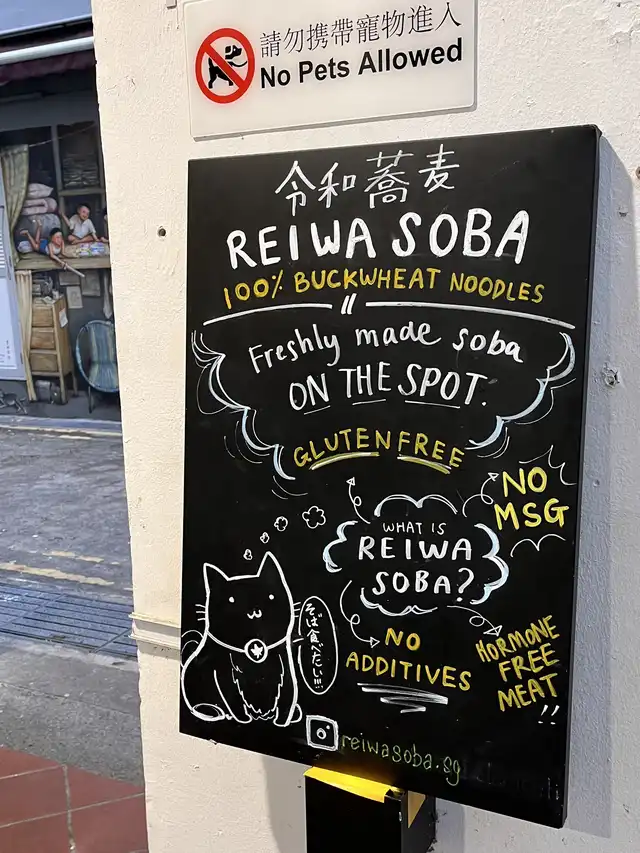 請勿携帶寵物進入
No Pets Allowed
令和蕎麦
REIWA SOBA
100% BUCKWHEAT NOODLES
Freshly made soba
ON THE SPOT.
GLUTEN FREE
NO
MSG
WHAT IS
REIWA
SOBA?
そば食べたい!!!
NO
ADDITIVES
HORMONE
FREE
MEAT
!!
reiwasoba.sg